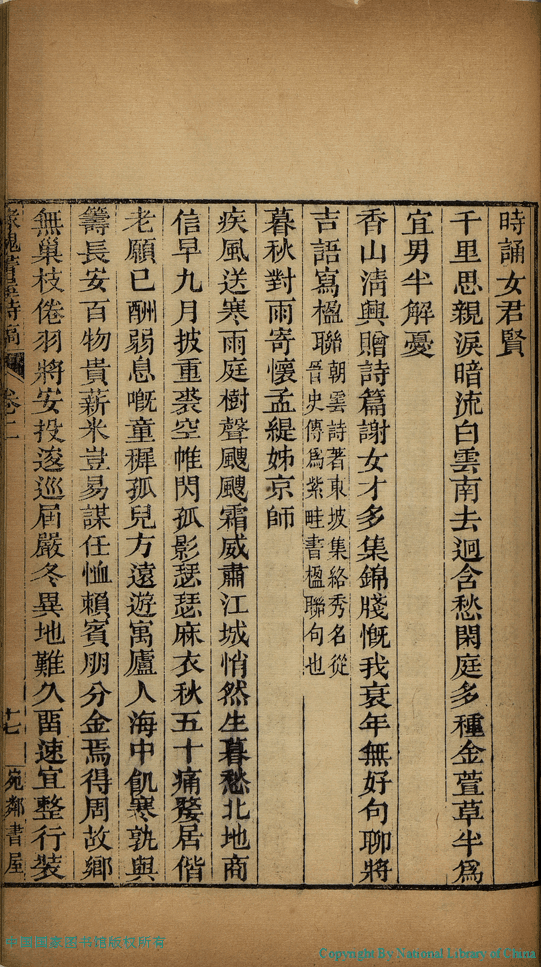 時誦女君賢
千里思親淚暗流白雲南去迴含愁閑庭多種金萱草半爲
宜男半解憂
香山清興贈詩篇謝女才多集錦牋慨我衰年無好句聊將
吉語寫楹聯朝雲詩著東坡集絡秀名從
晉史傳爲紫畦書楹聯句也
暮秋對雨寄懷孟緹姊京師
疾風送寒雨庭樹聲颼颼霜威肅江城悄然生暮愁北地商
信早九月披重裘空帷閃孤影瑟瑟麻衣秋五十痛嫠居偕
老願已酬弱息嘅童穉孤兒方遠遊寓廬人海中飢寒孰與
籌長安百物貴薪米豈易謀任恤賴賓朋分金焉得周故鄉
無巢枝倦羽將安投逡巡屆嚴冬異地難久畱速宜整行裝
卷二
十七
宛鄰書屋
中國國家图书馆版权所有
Copyright By National Library of China